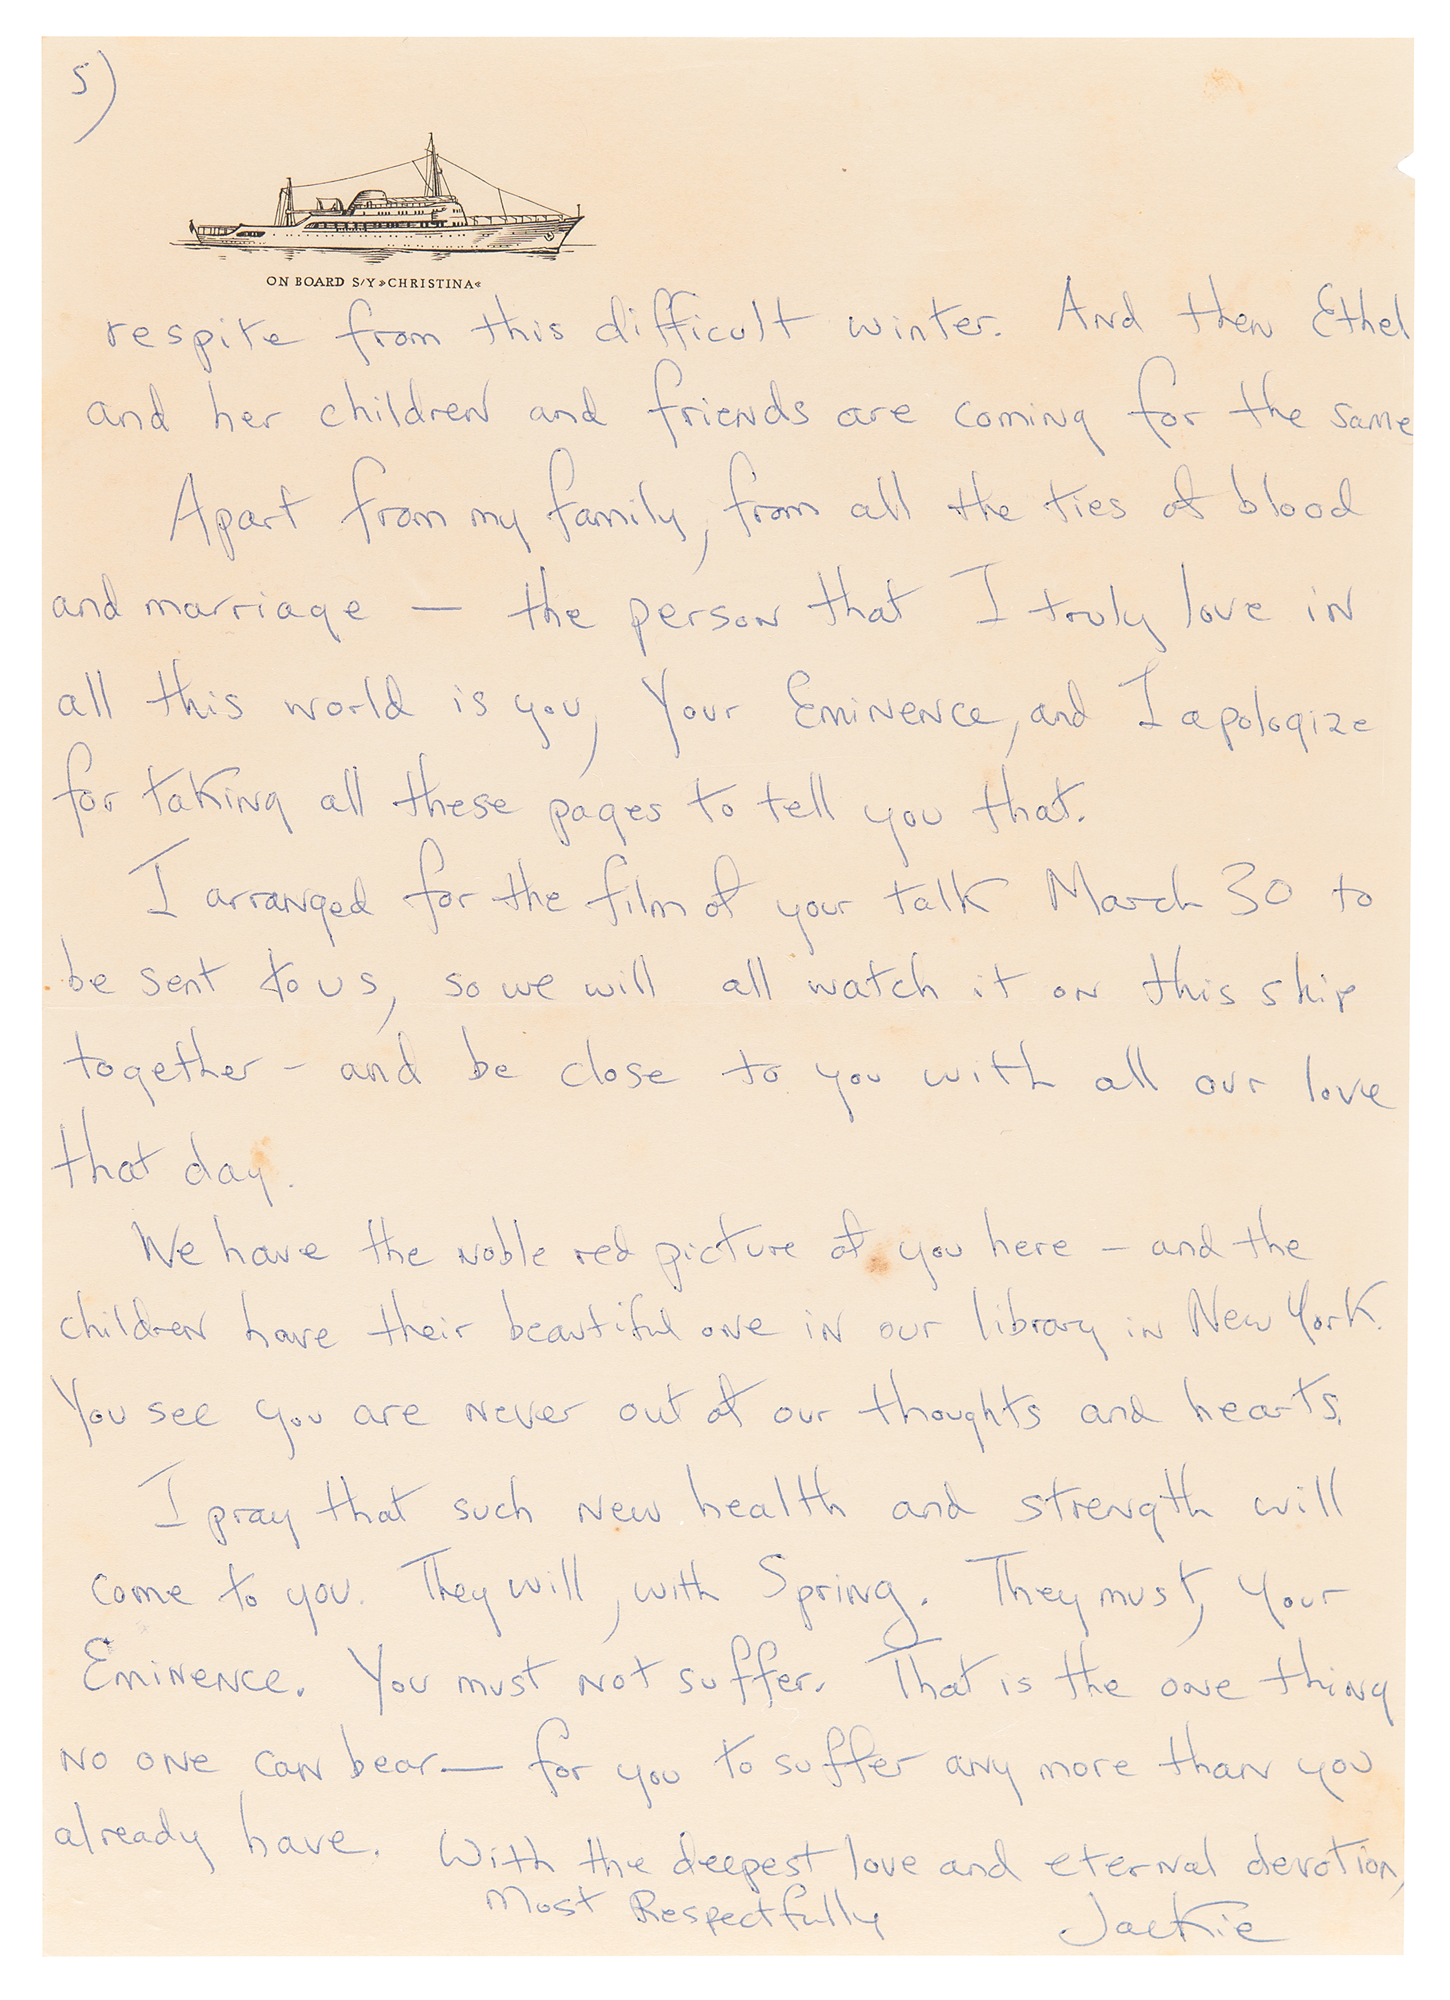 5)
ON BOARD S/Y »CHRISTINA«
respite from this difficult winter. And then Ethel
and her children and friends are coming for the same
Apart from my family, from all the ties of blood
and marriage — the person that I truly love in
all this world is you, Your Eminence, and I apologize
for taking all these pages to tell you that.
I arranged for the film of your talk March 30 to
be sent to us, so we will all watch it on this ship
together - and be close to you with all our love
that day.
We have the noble red picture of you here - and the
children have their beautiful one in our library in New York.
You see you are never out of our thoughts and hearts.
I pray that such new health and strength will
come to you. They will, with Spring. They must, Your
Eminence. You must not suffer. That is the one thing
no one can bear — for you to suffer any more than you
already have. With the deepest love and eternal devotion,
Most Respectfully Jackie